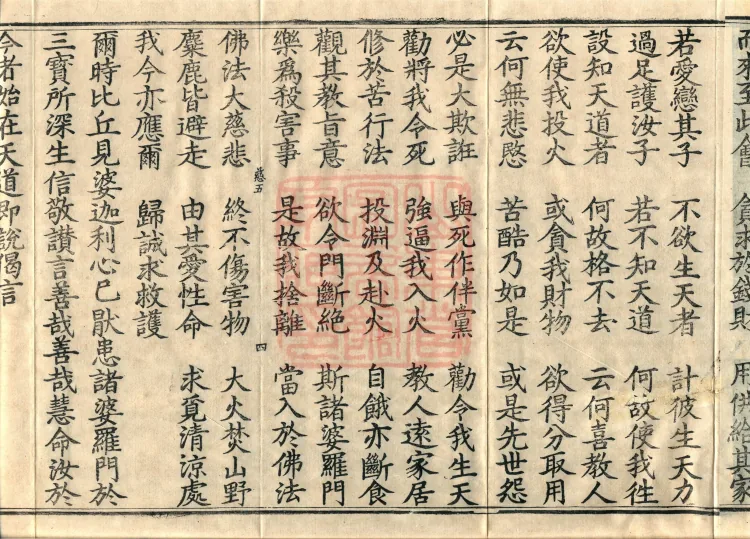 而來至此會 貪求於錢財 用供給其家
若愛戀其子 不欲生天者 計彼生天力
過足護汝子 若不知天道 何故使我往
設知天道者 何故格不去 云何喜教人
欲使我投火 或貪我財物 欲得分取用
云何無悲愍 苦酷乃如是 或是先世怨
必是大欺誑 與死作伴黨 勸令我生天
勸將我令死 強逼我入火 教人遠家居
修於苦行法 投淵及赴火 自餓亦斷食
觀其教旨意 欲令門斷絕 斯諸婆羅門
樂為殺害事 是故我捨離 當入於佛法
慈五 四
佛法大慈悲 終不傷害物 大火焚山野
麋鹿皆避走 由其愛性命 求覓清涼處
我今亦應爾 歸誠求救護
爾時比丘見婆迦利心已猒患諸婆羅門於
三寶所深生信敬讚言善哉善哉慧命汝於
今者始在天道即說偈言